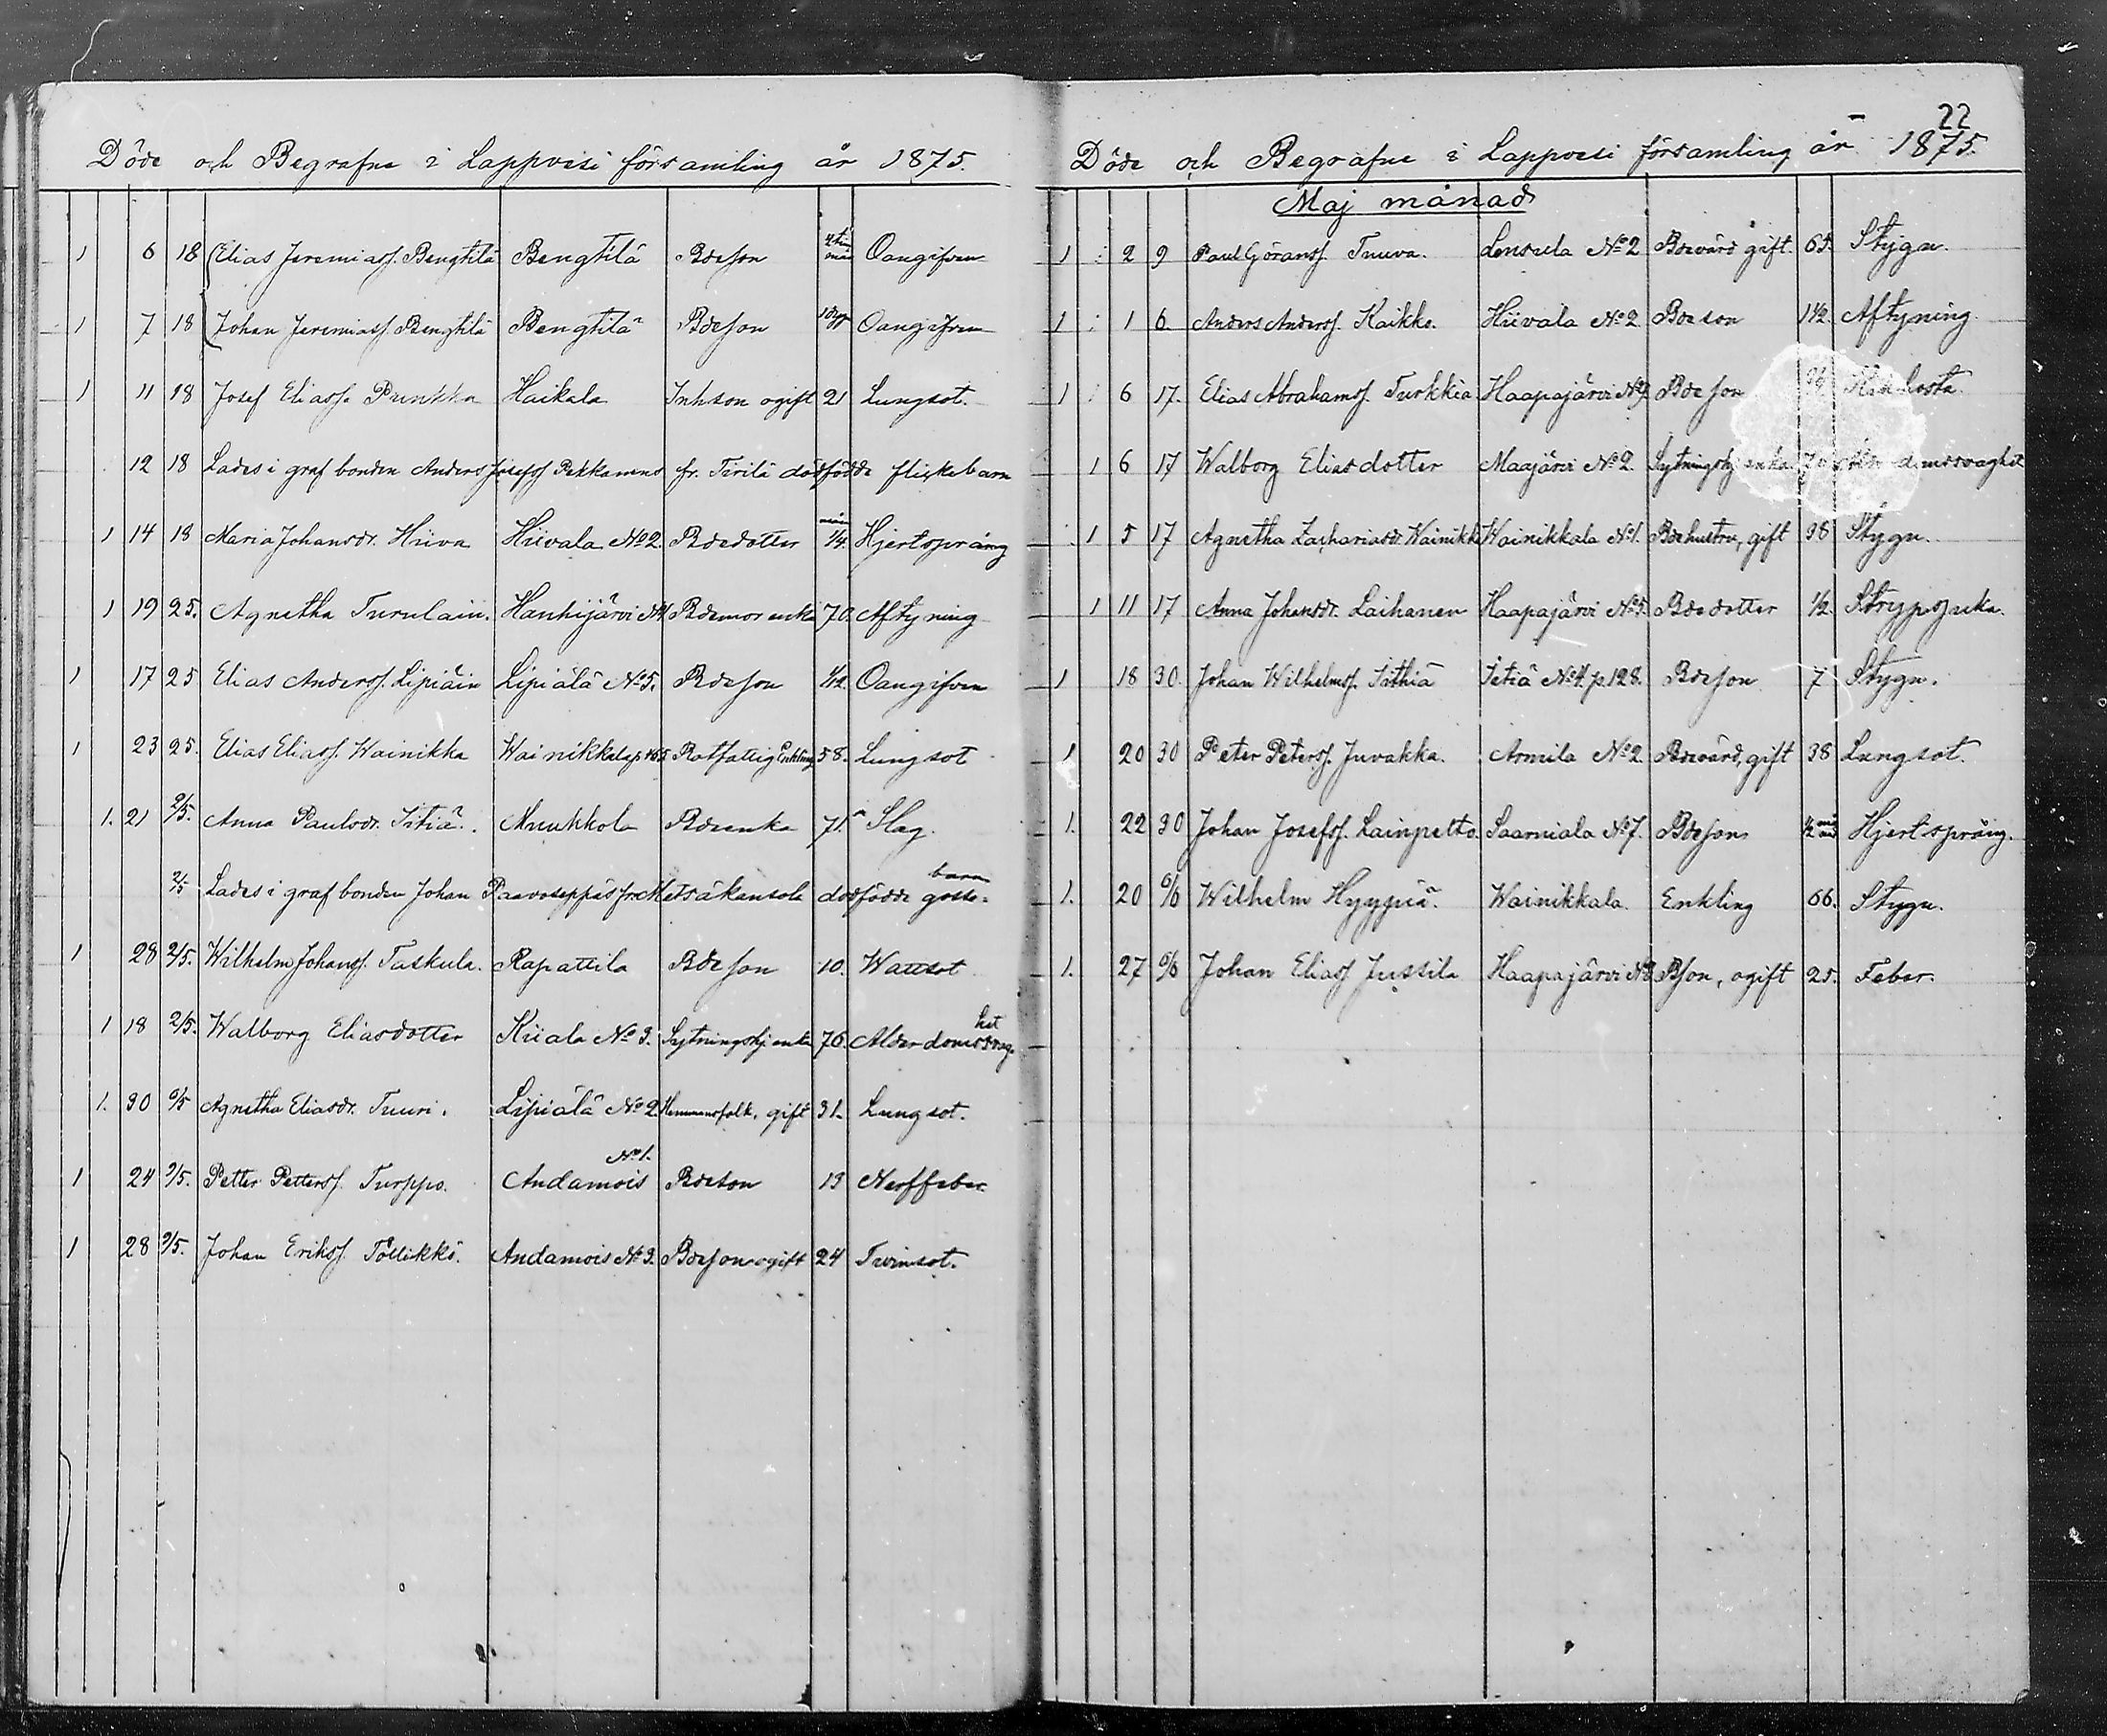 Döde och Begrafne i Lappvesi församling år 1875.
1 6 18 Elias Jeremiass. Bengtilä Bengtilä Bdeson Oangifven
1 7 18 Johan Jeremiass. Bengtilä Bengtilä Bdeson Oangifven
1 11 18 Josef Eliass. Punkka Haikala Inhson ogift 21 Lungsot.
12 18 Lades i graf bonden Anders Josefss Pekkanens fr. Tirilä dödfödde flickebarn
1 14 18 Maria Johansdr. Hiiva Hiivala No 2 Bdedotter mån 1/4. Hjertsprång
1 19 25. Agnetha Turulain. Hanhijärvi No 4 Bdemor enka 70. Aftyning
1 17 25 Elias Anderss. Lipiäin Lipiälä No 5. Bdeson 1/2 Oangifven
1 23 25. Elias Eliass. Wainikka Wainikkala p. 165 Rotfattig Enkling 58. Lungsot
1. 21 2/5. Anna Paulsdr. Sitiä. Muukkola Bdeenka 71. Slag.
2/5 Lades i graf bonden Johan Paavoseppäs fr. Metsäkansola dödfödde gosse= barn
1 28 2/5. Wilhelm Johanss. Taskula. Rapattila Bdeson 10. Wattsot
1 18 2/5. Walborg Eliasdotter Kiiala No 3. Sytningshj enka 76. Alderdomssvag= het
1. 30 9/5 Agnetha Eliasdr. Tuuri. Lipiälä No 2 Hemmansfolk, gift 31. Lungsot.
1 24 9/5. Petter Petterss. Turppo. Andamois No 1. Bdeson 13 Nerffeber
1 28 9/5. Johan Erikss. Töllikkö. Andamois No 3. Bdeson ogift 24 Tvinsot.
22
Döde och Begrafne i Lappvesi församling år 1875.
Maj månad
1 2 9 Paul Göranss. Tuuva. Lensula No 2 Bdevärd gift. 65. Stygn.
1 1 6. Anders Anderss. Kaikko. Hiivala No 2 Bdeson 1 1/2 Aftyning.
1 6 17. Elias Abrahamss. Turkkia Haapajärvi Bdeson
1 6 17 Walborg Eliasdotter Maajärvi No 2. Sytningshj enka
1 5 17 Agnetha Zachariasdr. Wainikka Wainikkala No 1. Bdehustru, gift 38 Stygn.
1 11 17 Anna Johansdr. Laihanen Haapajärvi No 5. Bdedotter 1/2. Strypsjuka.
1 18 30. Johan Wilhelmss. Sithiä Setiä No 4. p. 128. Bdeson 7 Stygn.
1 20 30 Peter Peterss. Juvakka. Armila No 2. Bdevärd, gift 38 Lungsot.
1. 22 30 Johan Josefss. Lainpelto. Saarniala No 7. Bdeson 1/2 månad Hjertsprång.
1. 20 6/6 Wilhelm Hyypiä. Wainikkala. Enkling 66. Stygn.
1. 27 6/6 Johan Eliass Jussila Haapajärvi Bson, ogift 25. Feber.